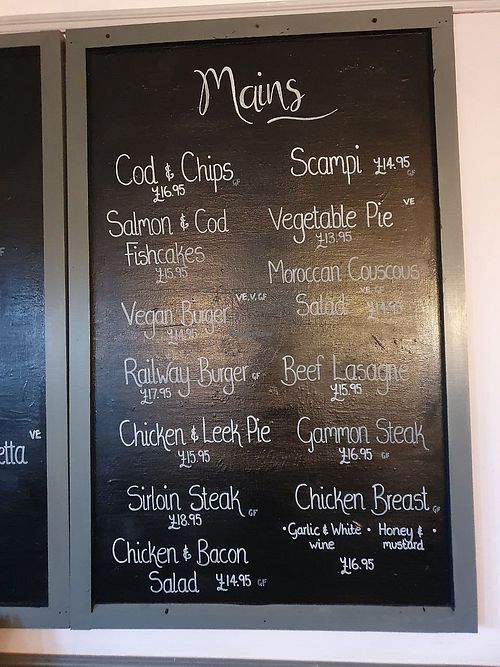 Mains
Cod & Chips GF
£16.95
Salmon & Cod
Fishcakes
£15.95
VE, V, GF
Vegan Burger
£14.95
Railway Burger GF
£17.95
Chicken & Leek Pie
£15.95
Sirloin Steak GF
£18.95
Chicken & Bacon
Salad £14.95 GF
Scampi £14.95
GF
Vegetable Pie VE
£13.95
Moroccan Couscous
Salad VE £14.95
Beef Lasagne
£15.95
Gammon Steak
£16.95 GF
Chicken Breast GF
• Garlic & White • Honey & •
wine mustard
£16.95
VE
etta